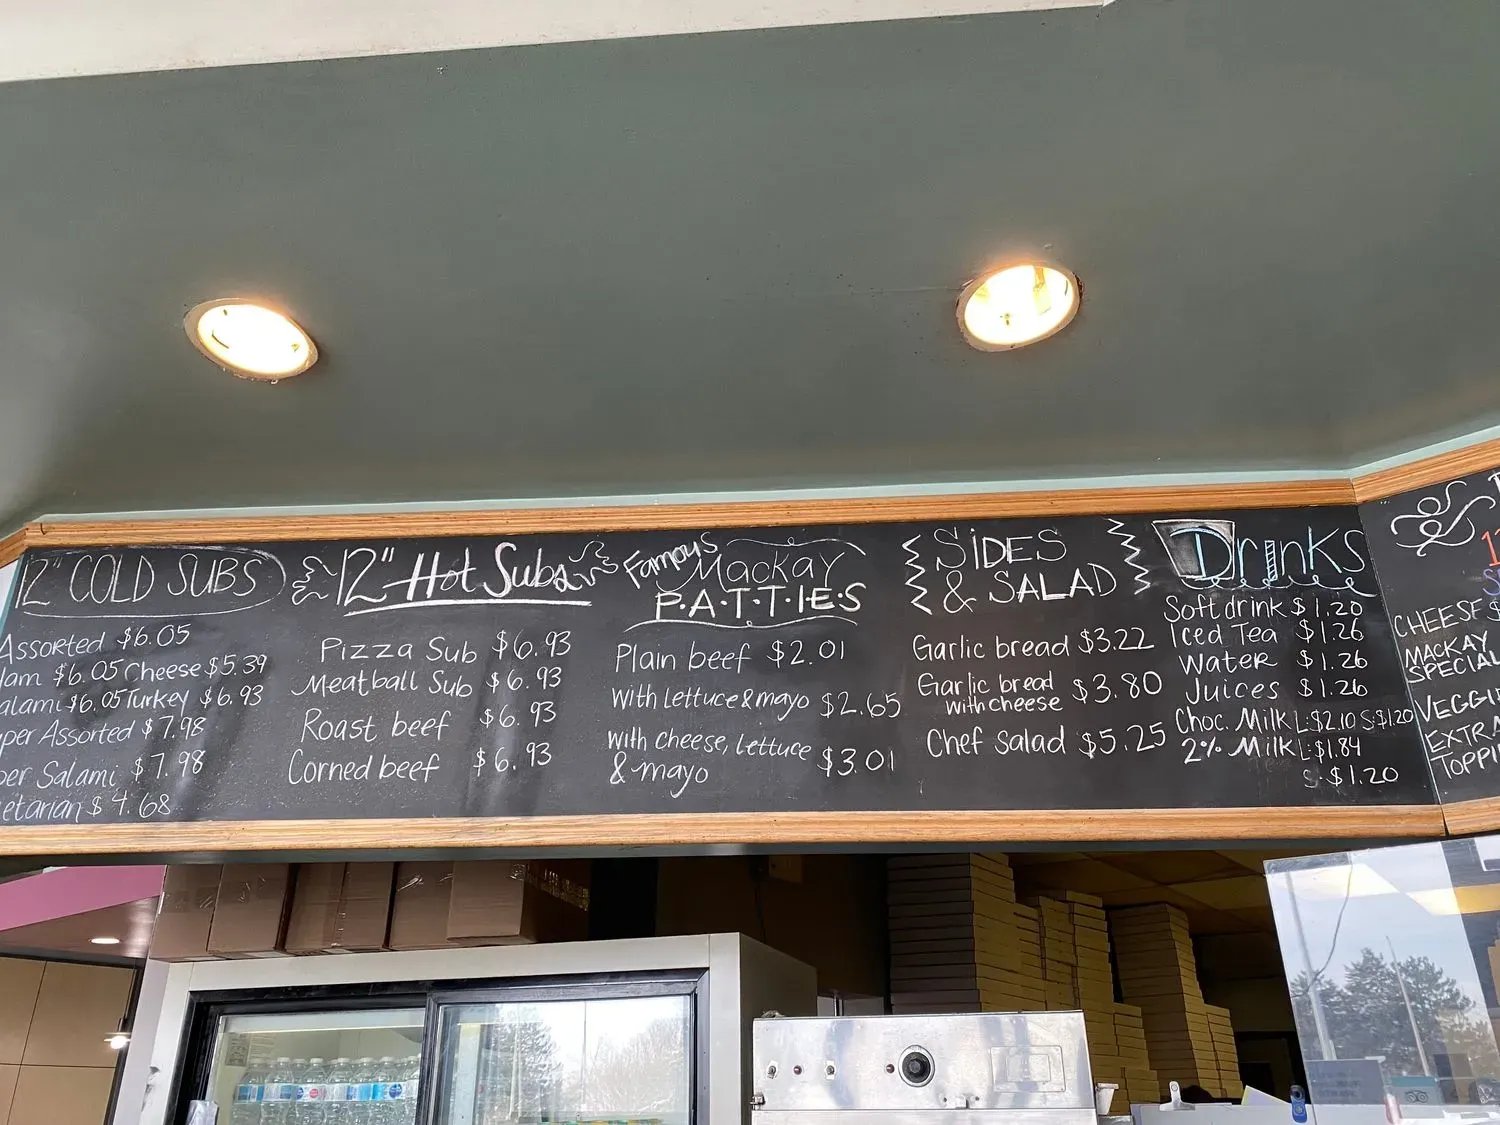 12" COLD SUBS
Assorted $6.05
Ham $6.05 Cheese $5.39
Salami $6.05 Turkey $6.93
per Assorted $7.98
per Salami $7.98
etarian $4.68
12" Hot Subs
Pizza Sub $6.93
Meatball Sub $6.93
Roast beef $6.93
Corned beef $6.93
Famous
Mackay
P.A.T.T.I.E.S
Plain beef $2.01
With lettuce & mayo $2.65
with cheese, lettuce
& mayo $3.01
SIDES
& SALAD
Garlic bread $3.22
Garlic bread
with cheese $3.80
Chef Salad $5.25
Drinks
Soft drink $1.20
Iced Tea $1.26
Water $1.26
Juices $1.26
Choc. Milk L:$2.10 S:$1.20
2% Milk L:$1.84
S:$1.20
CHEESE $
MACKAY
SPECIAL
VEGGI
EXTRA
TOPPI